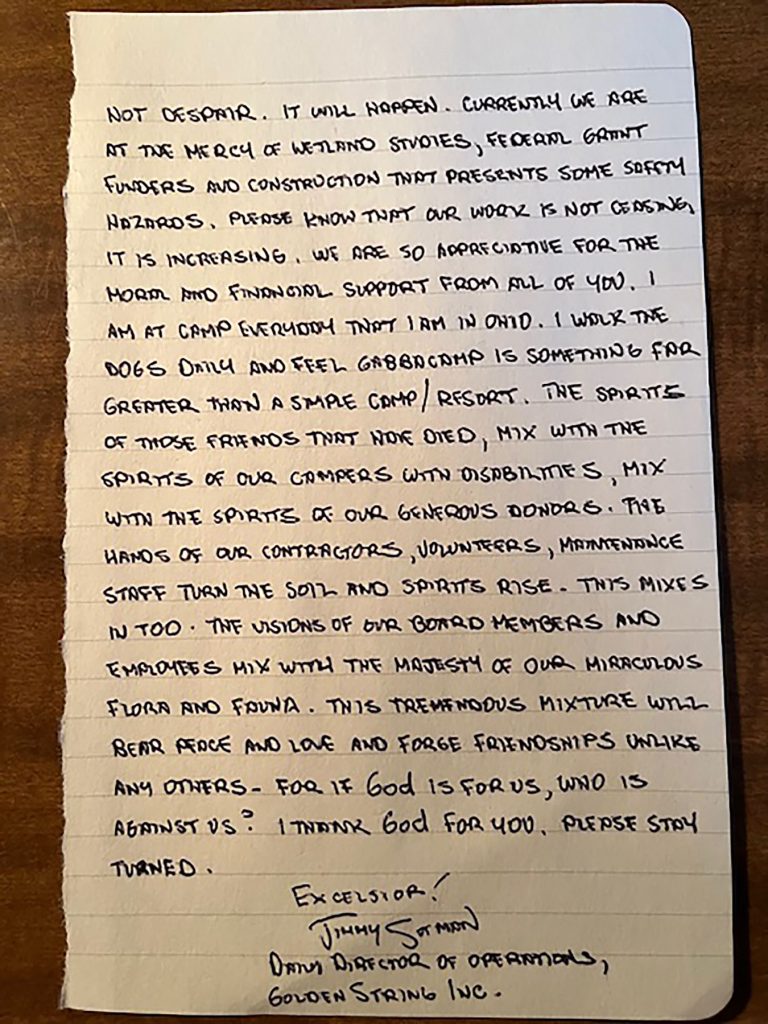 NOT DESPAIR. IT WILL HAPPEN. CURRENTLY WE ARE
AT THE MERCY OF WETLAND STUDIES, FEDERAL GRANT
FUNDERS AND CONSTRUCTION THAT PRESENTS SOME SAFETY
HAZARDS. PLEASE KNOW THAT OUR WORK IS NOT CEASING,
IT IS INCREASING. WE ARE SO APPRECIATIVE FOR THE
MORAL AND FINANCIAL SUPPORT FROM ALL OF YOU. I
AM AT CAMP EVERYDAY THAT I AM IN OHIO. I WALK THE
DOGS DAILY AND FEEL GABBACAMP IS SOMETHING FAR
GREATER THAN A SIMPLE CAMP/RESORT. THE SPIRITS
OF THOSE FRIENDS THAT HAVE DIED, MIX WITH THE
SPIRITS OF OUR CAMPERS WITH DISABILITIES, MIX
WITH THE SPIRITS OF OUR GENEROUS DONORS. THE
HANDS OF OUR CONTRACTORS, VOLUNTEERS, MAINTENANCE
STAFF TURN THE SOIL AND SPIRITS RISE. THIS MIXES
IN TOO. THE VISIONS OF OUR BOARD MEMBERS AND
EMPLOYEES MIX WITH THE MAJESTY OF OUR MIRACULOUS
FLORA AND FAUNA. THIS TREMENDOUS MIXTURE WILL
BEAR PEACE AND LOVE AND FORGE FRIENDSHIPS UNLIKE
ANY OTHERS - FOR IF God IS FOR US, WHO IS
AGAINST US? I THANK God FOR YOU. PLEASE STAY
TURNED.
EXCELSIOR!
JIMMY SUTMAN
DAILY DIRECTOR OF OPERATIONS,
GOLDEN STRING INC.